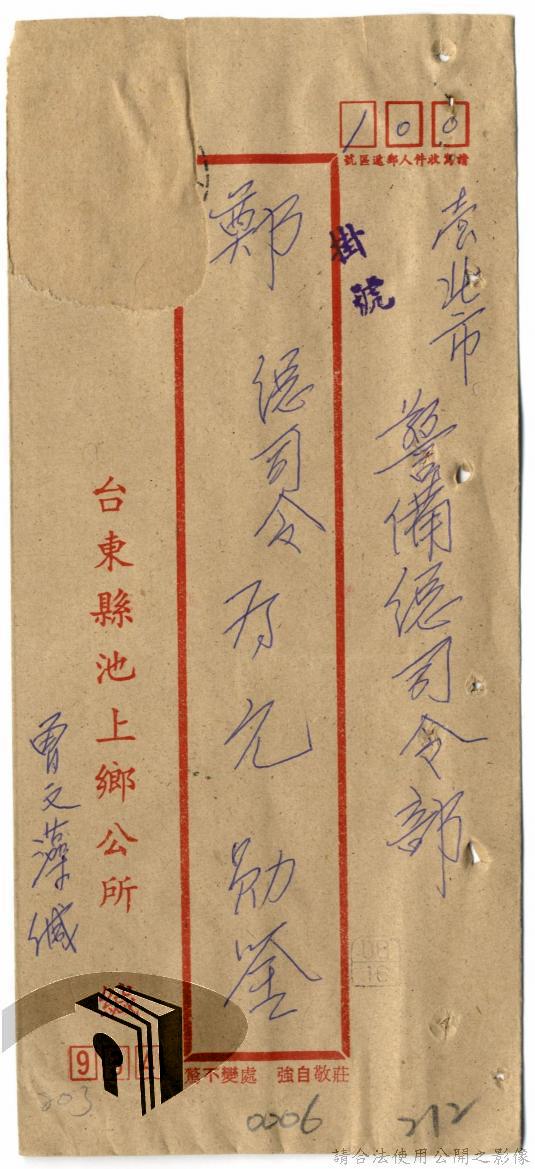 100
請寫收件人郵遞區號
臺北市
警備總司令部
掛號
鄭 總司令 為元 勛鑒
台東縣池上鄉公所
曾文藻緘
莊敬自強 處變不驚
203
0006
212
請合法使用公開之影像